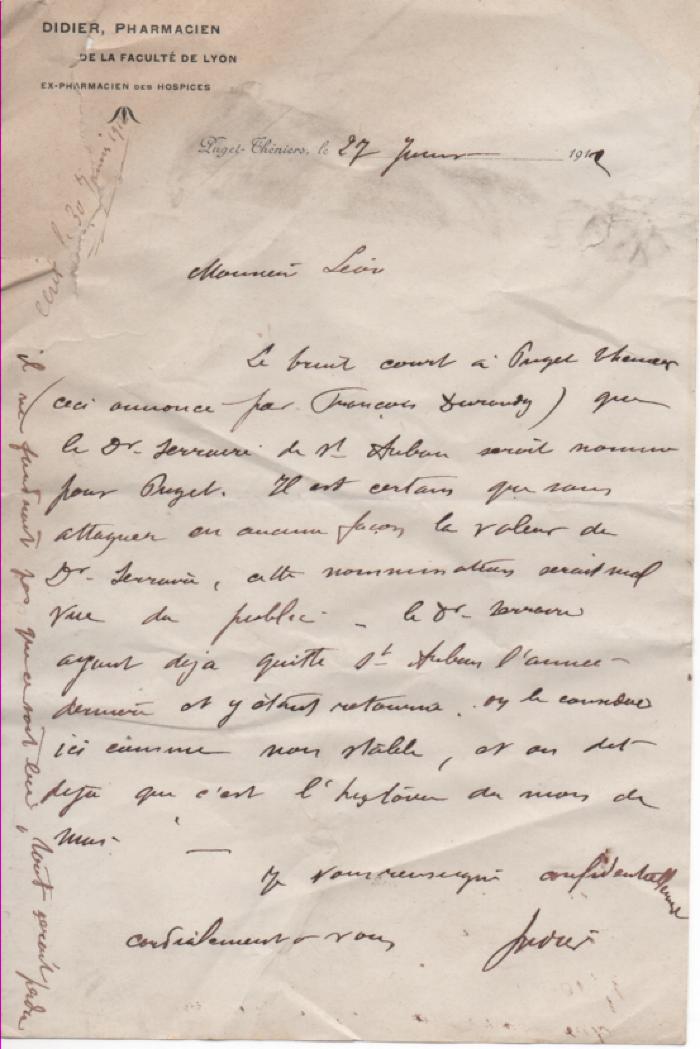 DIDIER, PHARMACIEN
DE LA FACULTÉ DE LYON
EX-PHARMACIEN DES HOSPICES
Puget-Théniers, le 27 191
Monsieur Léon
Le bruit court à Puget Theniers
(ceci annonce par François Durandy) que
le Dr. Serraire de St Auban serait nomme
pour Puget. Il est certain que sans
attaquer en aucune façon la valeur de
Dr. Serraire, cette nommination serait mal
vue du public - le Dr. Serraire
ayant deja quitte St Auban l'annee
derniere et y étant retourne. on le considere
ici comme non stable, et on dit
deja que c'est l'histoire du mois de
Mai.
Je vous renseigne confidentiellement
cordialement a vous
Didier
il ne faudrait pas que ce soit lui, tout serait perdu
30